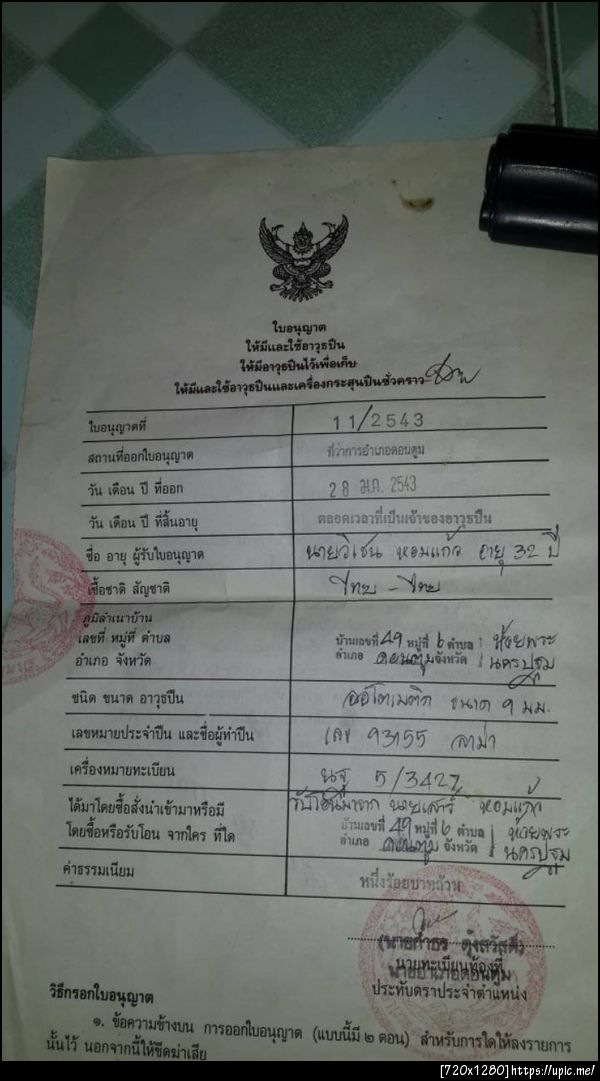 ใบอนุญาต
ให้มีและใช้อาวุธปืน
ให้มีอาวุธปืนไว้เพื่อเก็บ
ให้มีและใช้อาวุธปืนและเครื่องกระสุนปืนชั่วคราว
ใบอนุญาตที่ 11/2543
สถานที่ออกใบอนุญาต ที่ว่าการอำเภอดอนตูม
วัน เดือน ปี ที่ออก 28 ม.ค. 2543
วัน เดือน ปี ที่สิ้นอายุ ตลอดเวลาที่เป็นเจ้าของอาวุธปืน
ชื่อ อายุ ผู้รับใบอนุญาต นายวิเชน หอมแก้ว อายุ 32 ปี
เชื้อชาติ สัญชาติ ไทย - ไทย
ภูมิลำเนาบ้าน
เลขที่ หมู่ที่ ตำบล บ้านเลขที่ 49 หมู่ที่ 6 ตำบล ห้วยพระ
อำเภอ จังหวัด อำเภอ ดอนตูม จังหวัด นครปฐม
ชนิด ขนาด อาวุธปืน ออโตเมติก ขนาด 9 มม.
เลขหมายประจำปืน และชื่อผู้ทำปืน เลข 93155 ลาม่า
เครื่องหมายทะเบียน นฐ 5/3427
ได้มาโดยซื้อสั่งนำเข้ามาหรือมี รับโอนมาจาก นายเสาร์ หอมแก้ว
โดยซื้อหรือรับโอน จากใคร ที่ใด บ้านเลขที่ 49 หมู่ที่ 6 ตำบล ห้วยพระ
อำเภอ ดอนตูม จังหวัด นครปฐม
ค่าธรรมเนียม หนึ่งร้อยบาทถ้วน
(นายกำธร ตุ้งสวัสดิ์)
นายทะเบียนท้องที่
นายอำเภอดอนตูม
ประทับตราประจำตำแหน่ง
วิธีกรอกใบอนุญาต
๑. ข้อความข้างบน การออกใบอนุญาต (แบบนี้มี ๒ ตอน) สำหรับการใดให้ลงรายการ
นั้นไว้ นอกจากนี้ให้ขีดฆ่าเสีย
[720x1280]https://upic.me/